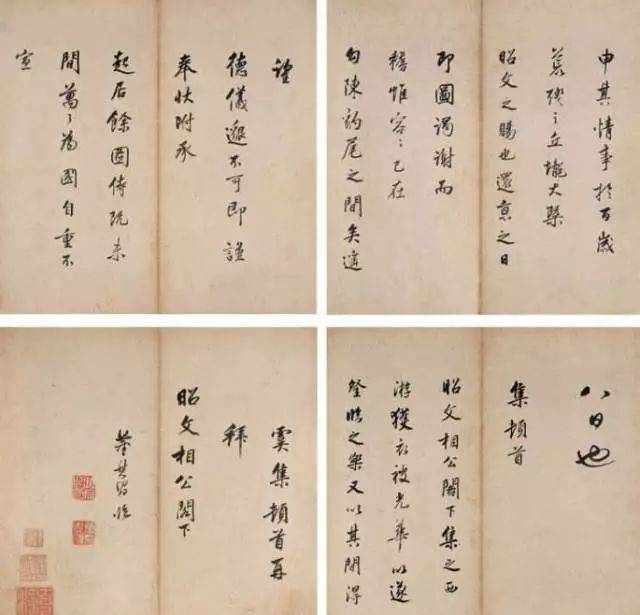 八日也
集頓首
昭文相公閣下集之西
游獲衣被光華以遂
登臨之樂又以其間得
申其情事於百歲
昭文之賜也還京之日
即圖謁謝而
襜帷容容已在
勾陳豹尾之間矣
德儀邈不可即謹
奉狀附承
起居餘圖侍
間萬萬為國自重不
宣
虞集頓首再
拜
昭文相公閣下
董其昌臨